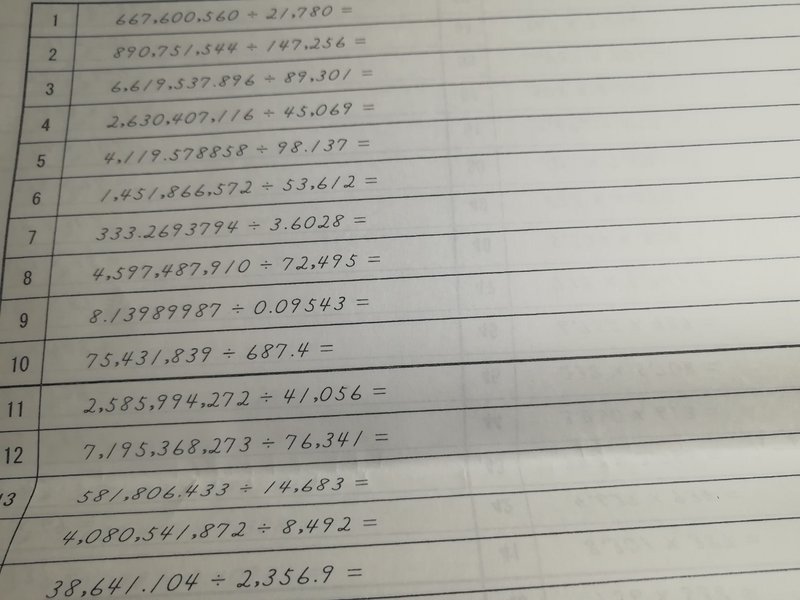 1 667,600,560 ÷ 21,780 =
2 890,751,544 ÷ 147,256 =
3 6,619,537.896 ÷ 89,301 =
4 2,630,407,116 ÷ 45,069 =
5 4,119.578858 ÷ 98.137 =
6 1,451,866,572 ÷ 53,612 =
7 333.2693794 ÷ 3.6028 =
8 4,597,487,910 ÷ 72,495 =
9 8.13989987 ÷ 0.09543 =
10 75,431,839 ÷ 687.4 =
11 2,585,994,272 ÷ 41,056 =
12 7,195,368,273 ÷ 76,341 =
13 581,806.433 ÷ 14,683 =
4,080,541,872 ÷ 8,492 =
38,641.104 ÷ 2,356.9 =